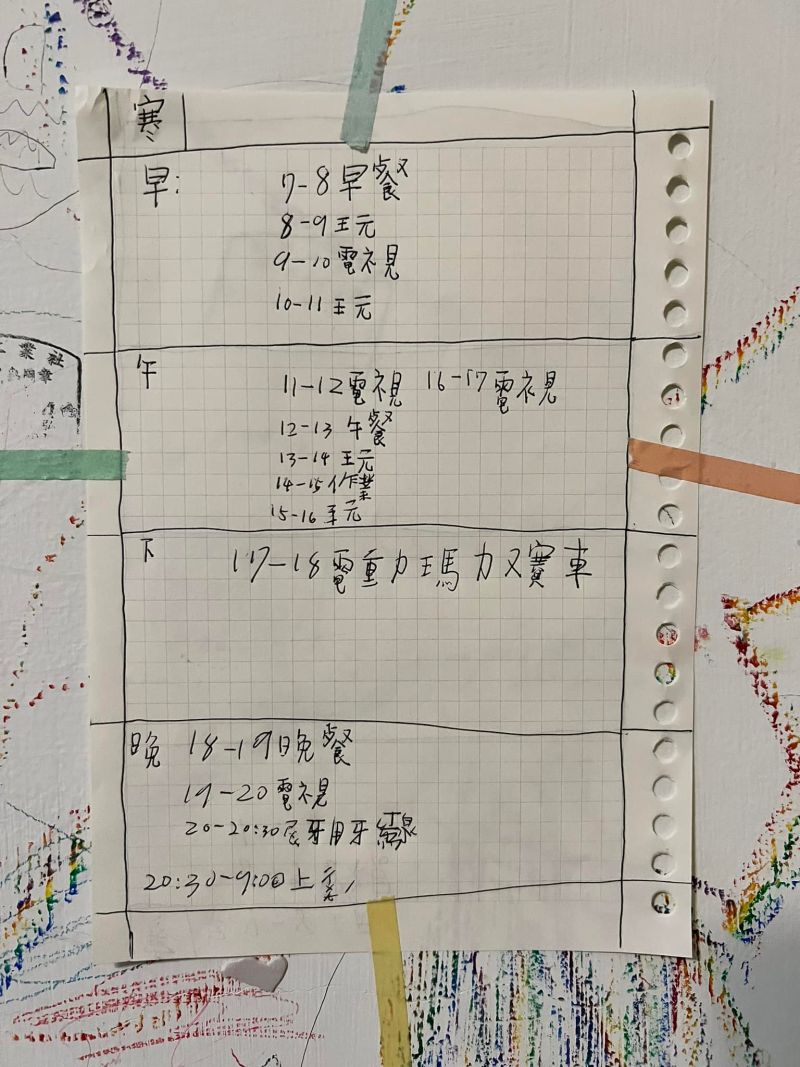 寒
早: 7-8早餐
8-9玩
9-10電視
10-11玩
午
11-12電視 16-17電視
12-13午餐
13-14玩
14-15作業
15-16玩
下 17-18電動瑪力又賽車
晚 18-19晚餐
19-20電視
20-20:30牙用牙線
20:30-9:00上
業社